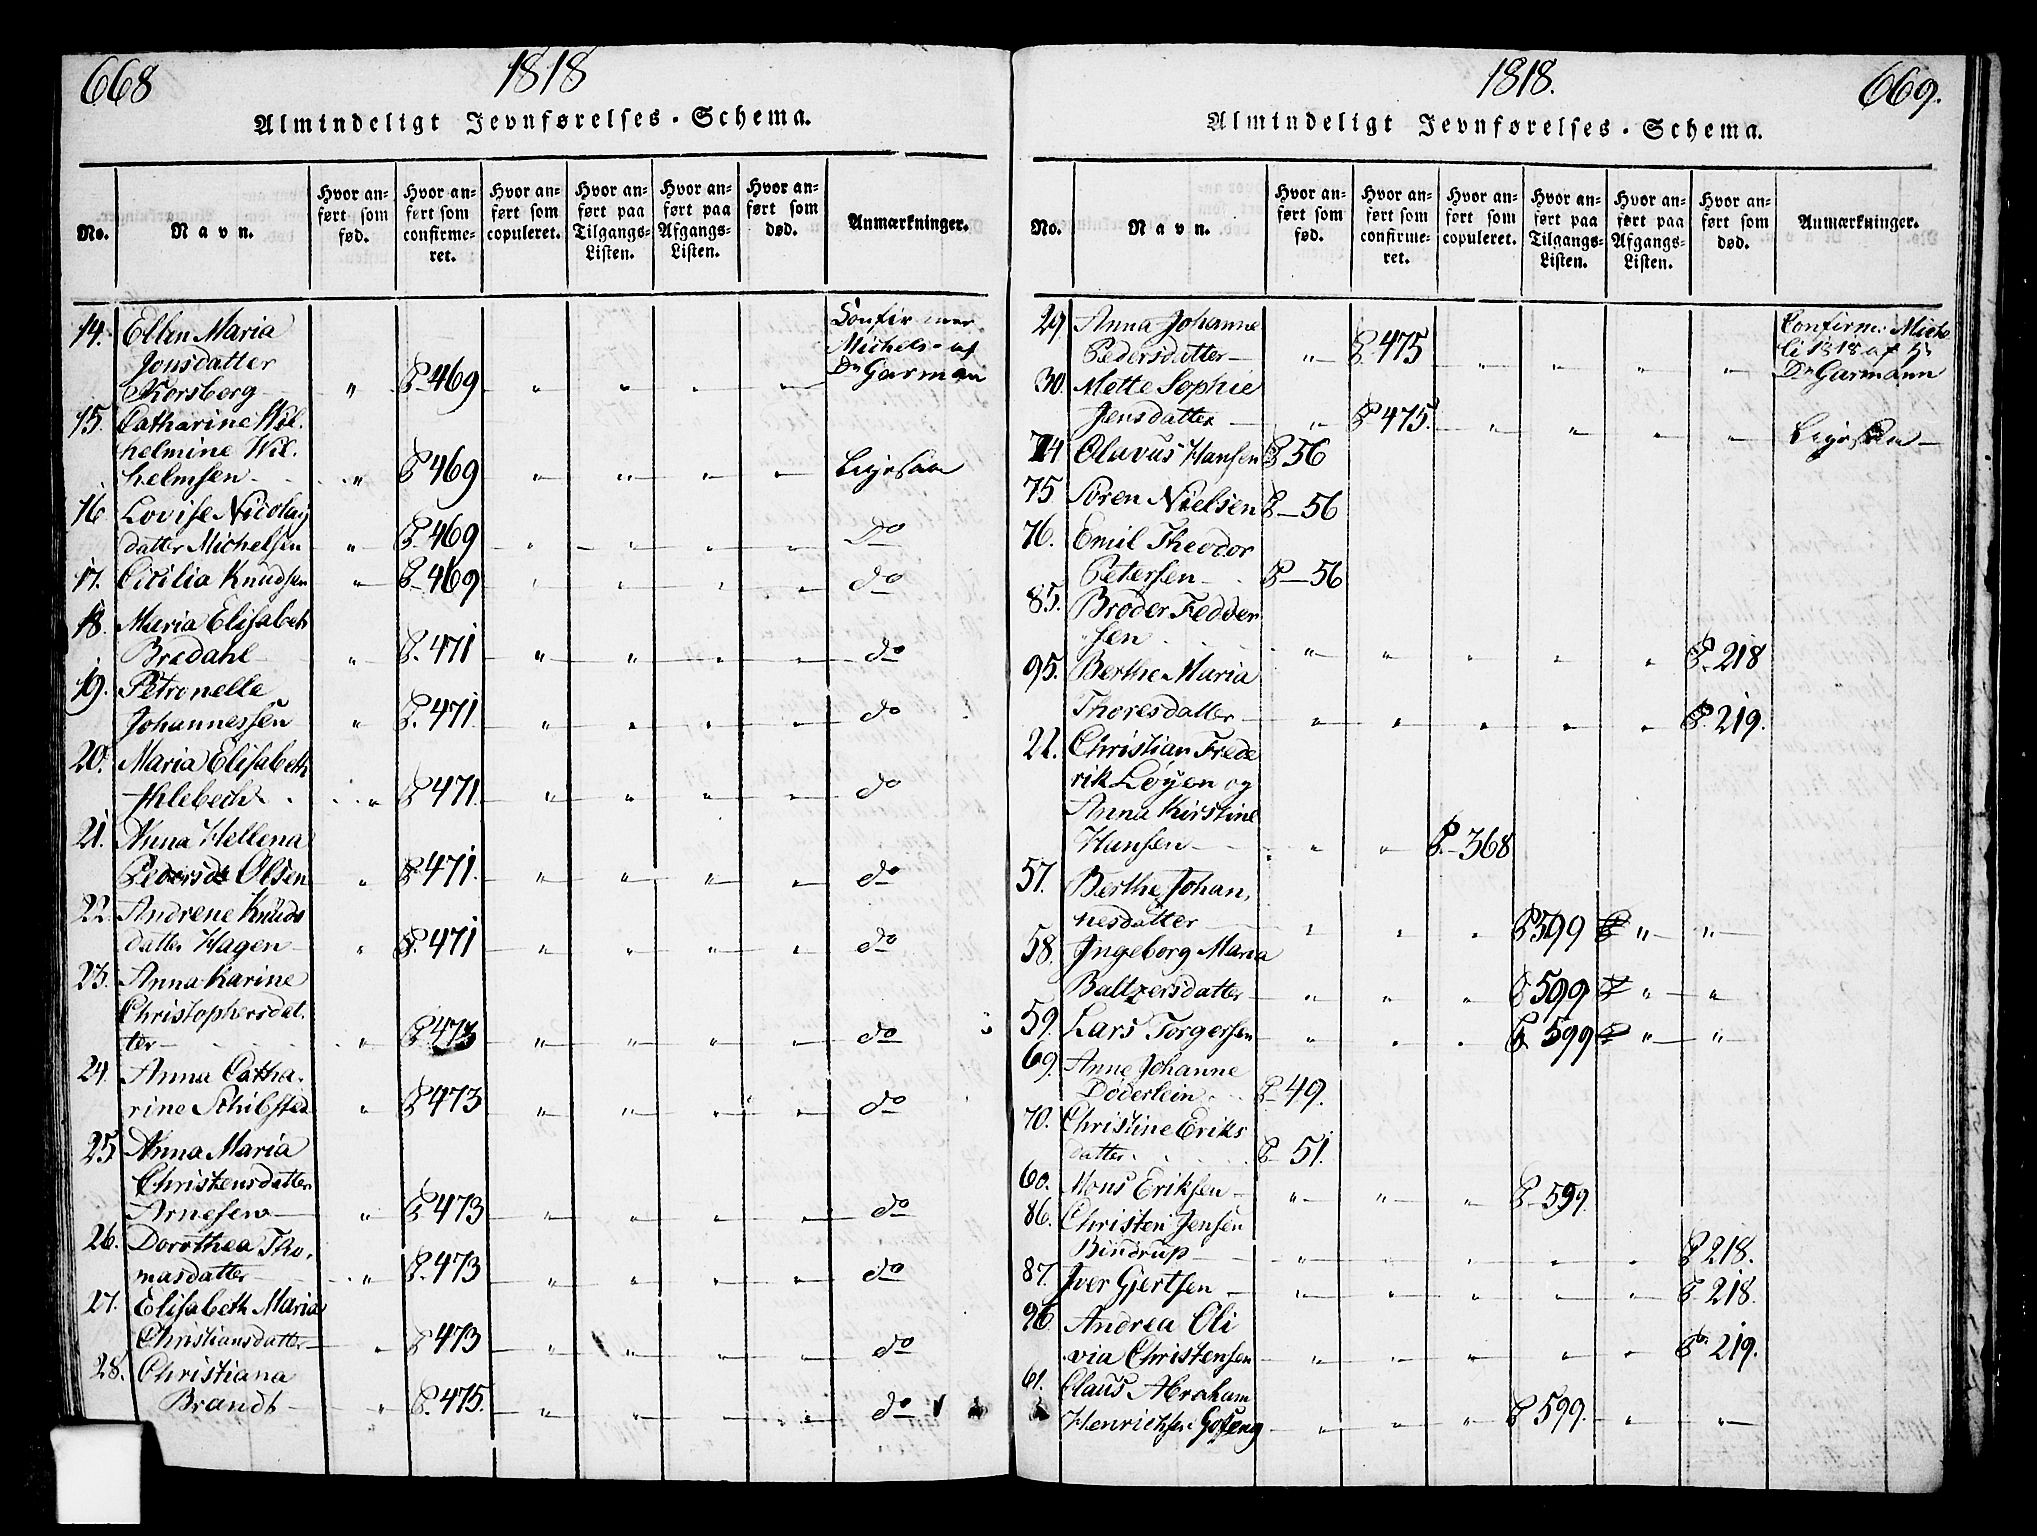 668
1818
Almindeligt Jevnførelses-Schema.
No.
Navn.
Hvor an-
ført som
fød.
Hvor an-
ført som
confirme-
ret.
Hvor an-
ført som
copuleret.
Hvor an-
ført paa
Tilgangs-
Listen.
Hvor an-
ført paa
Afgangs-
Listen.
Hvor an-
ført som
død.
Anmærkninger.
14. Ellen Maria Confirmer.
Jonsdatter Michels- af
Korsberg " P. 469 " " " " Dn Garman
15. Catharine Wil-
helmine Wil-
helmsen " P 469 " " " " Ligesaa
16 Lovise Nicolay
datter Michelsen " P. 469 " " " " Do
17. Cicilia Knudsen " P. 469 " " " " do
18. Maria Elisabeth
Bredahl " P. 471 " " " " do
19. Petronelle
Johannessen " P. 471 " " " " do
20. Maria Elisabeth
Ihlebech " P 471. " " " " do
21. Anna Hellena
Pedersdr Olsen " P 471. " " " " do
22. Andrene Knuds
datter Hagen " P. 471 " " " " do
23. Anna Karine
Christophersdat-
ter " P 473 " " " " do
24. Anna Catha-
rine Schibsted " P 473 " " " " do
25 Anna Maria
Christensdatter
Arnesen " P 473 " " " " do
26. Dorothea Tho-
masdatter " P. 473 " " " " do
27. Elisabeth Maria
Christiansdatter " P 473 " " " " do
28. Christiana
Brandt " P. 475. " " " " do
1818.
669.
Almindeligt Jevnførelses-Schema.
No.
Navn.
Hvor an-
ført som
fød.
Hvor an-
ført som
confirme-
ret.
Hvor an-
ført som
copuleret.
Hvor an-
ført paa
Tilgangs-
Listen.
Hvor an-
ført paa
Afgangs-
Listen.
Hvor an-
ført som
død.
Anmærkninger.
29 Anna Johanne Confirm: Micha
Pedersdatter " P 475 " " " " li 1818 af Hr
30. Mette Sophie Dn Garmann
Jensdatter " P 475. " " " " Ligesaa
74 Olavus Hansen P 56
75 Søren Nielsen P 56
76. Emil Theodor
Petersen P 56
85. Broder Fedder
sen " " " " " P. 218
95. Berthe Maria
Thoresdatter " " " " " P. 219.
22. Christian Frede
rik Løyen og
Anna Kirstine
Hansen " " P. 368
57. Berthe Johan,
nesdatter " " " P 599 " "
58. Ingeborg Maria
Baltzersdatter " " " P 599 " "
59. Lars Torgersen " " " P 599 " "
69. Anne Johanne
Döderlein P 49.
70. Christine Eriks
datter P 51.
60. Mons Eriksen " " " P 599.
86. Christen Jensen
Bindrup " " " " " P 218.
87. Iver Gjertsen " " " " " P 218.
96 Andrea Oli
via Christensen " " " " " P. 219.
61. Claus Abraham
Henrichsen Goseng " " " P 599. " "